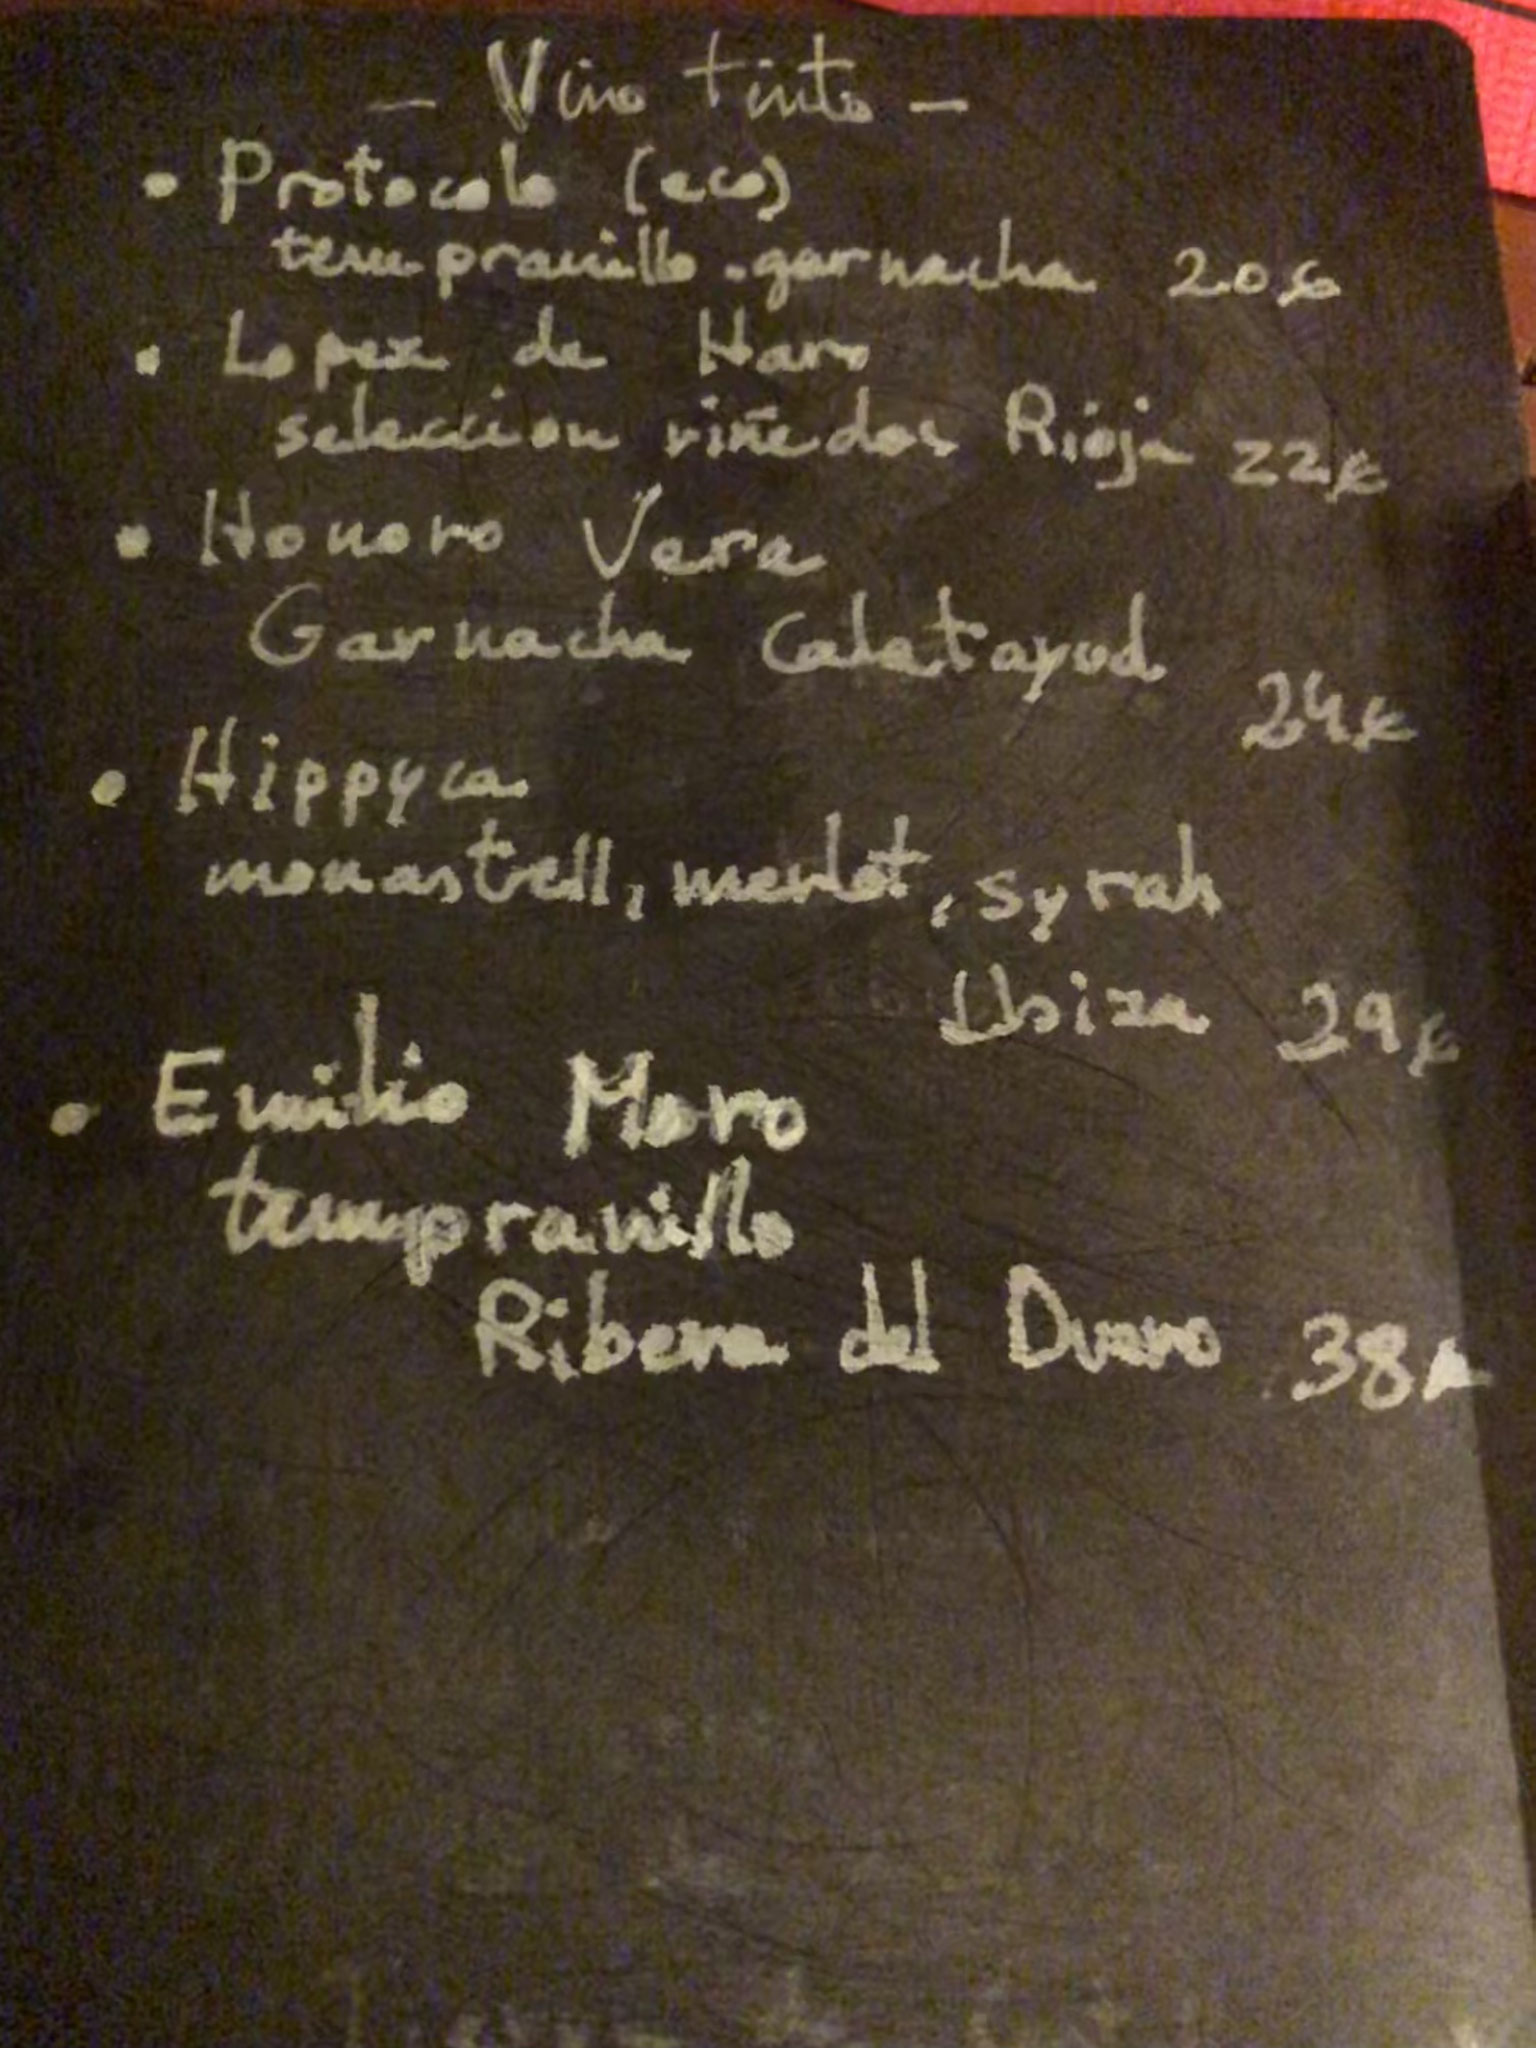 - Vino tinto -
• Protocolo (eco)
tempranillo - garnacha 20€
• Lopez de Haro
seleccion viñedos Rioja 22€
• Honoro Vera
Garnacha Calatayud
24€
• Hippyca
monastrell, merlot, syrah
Ibiza 29€
• Emilio Moro
tempranillo
Ribera del Duero 38€